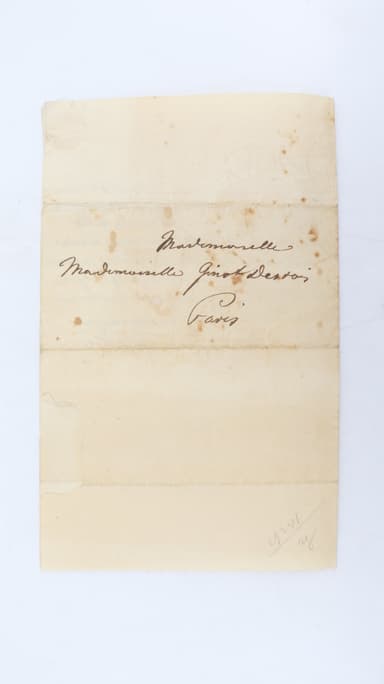 Mademoiselle
Mademoiselle Ginot Desrois
Paris